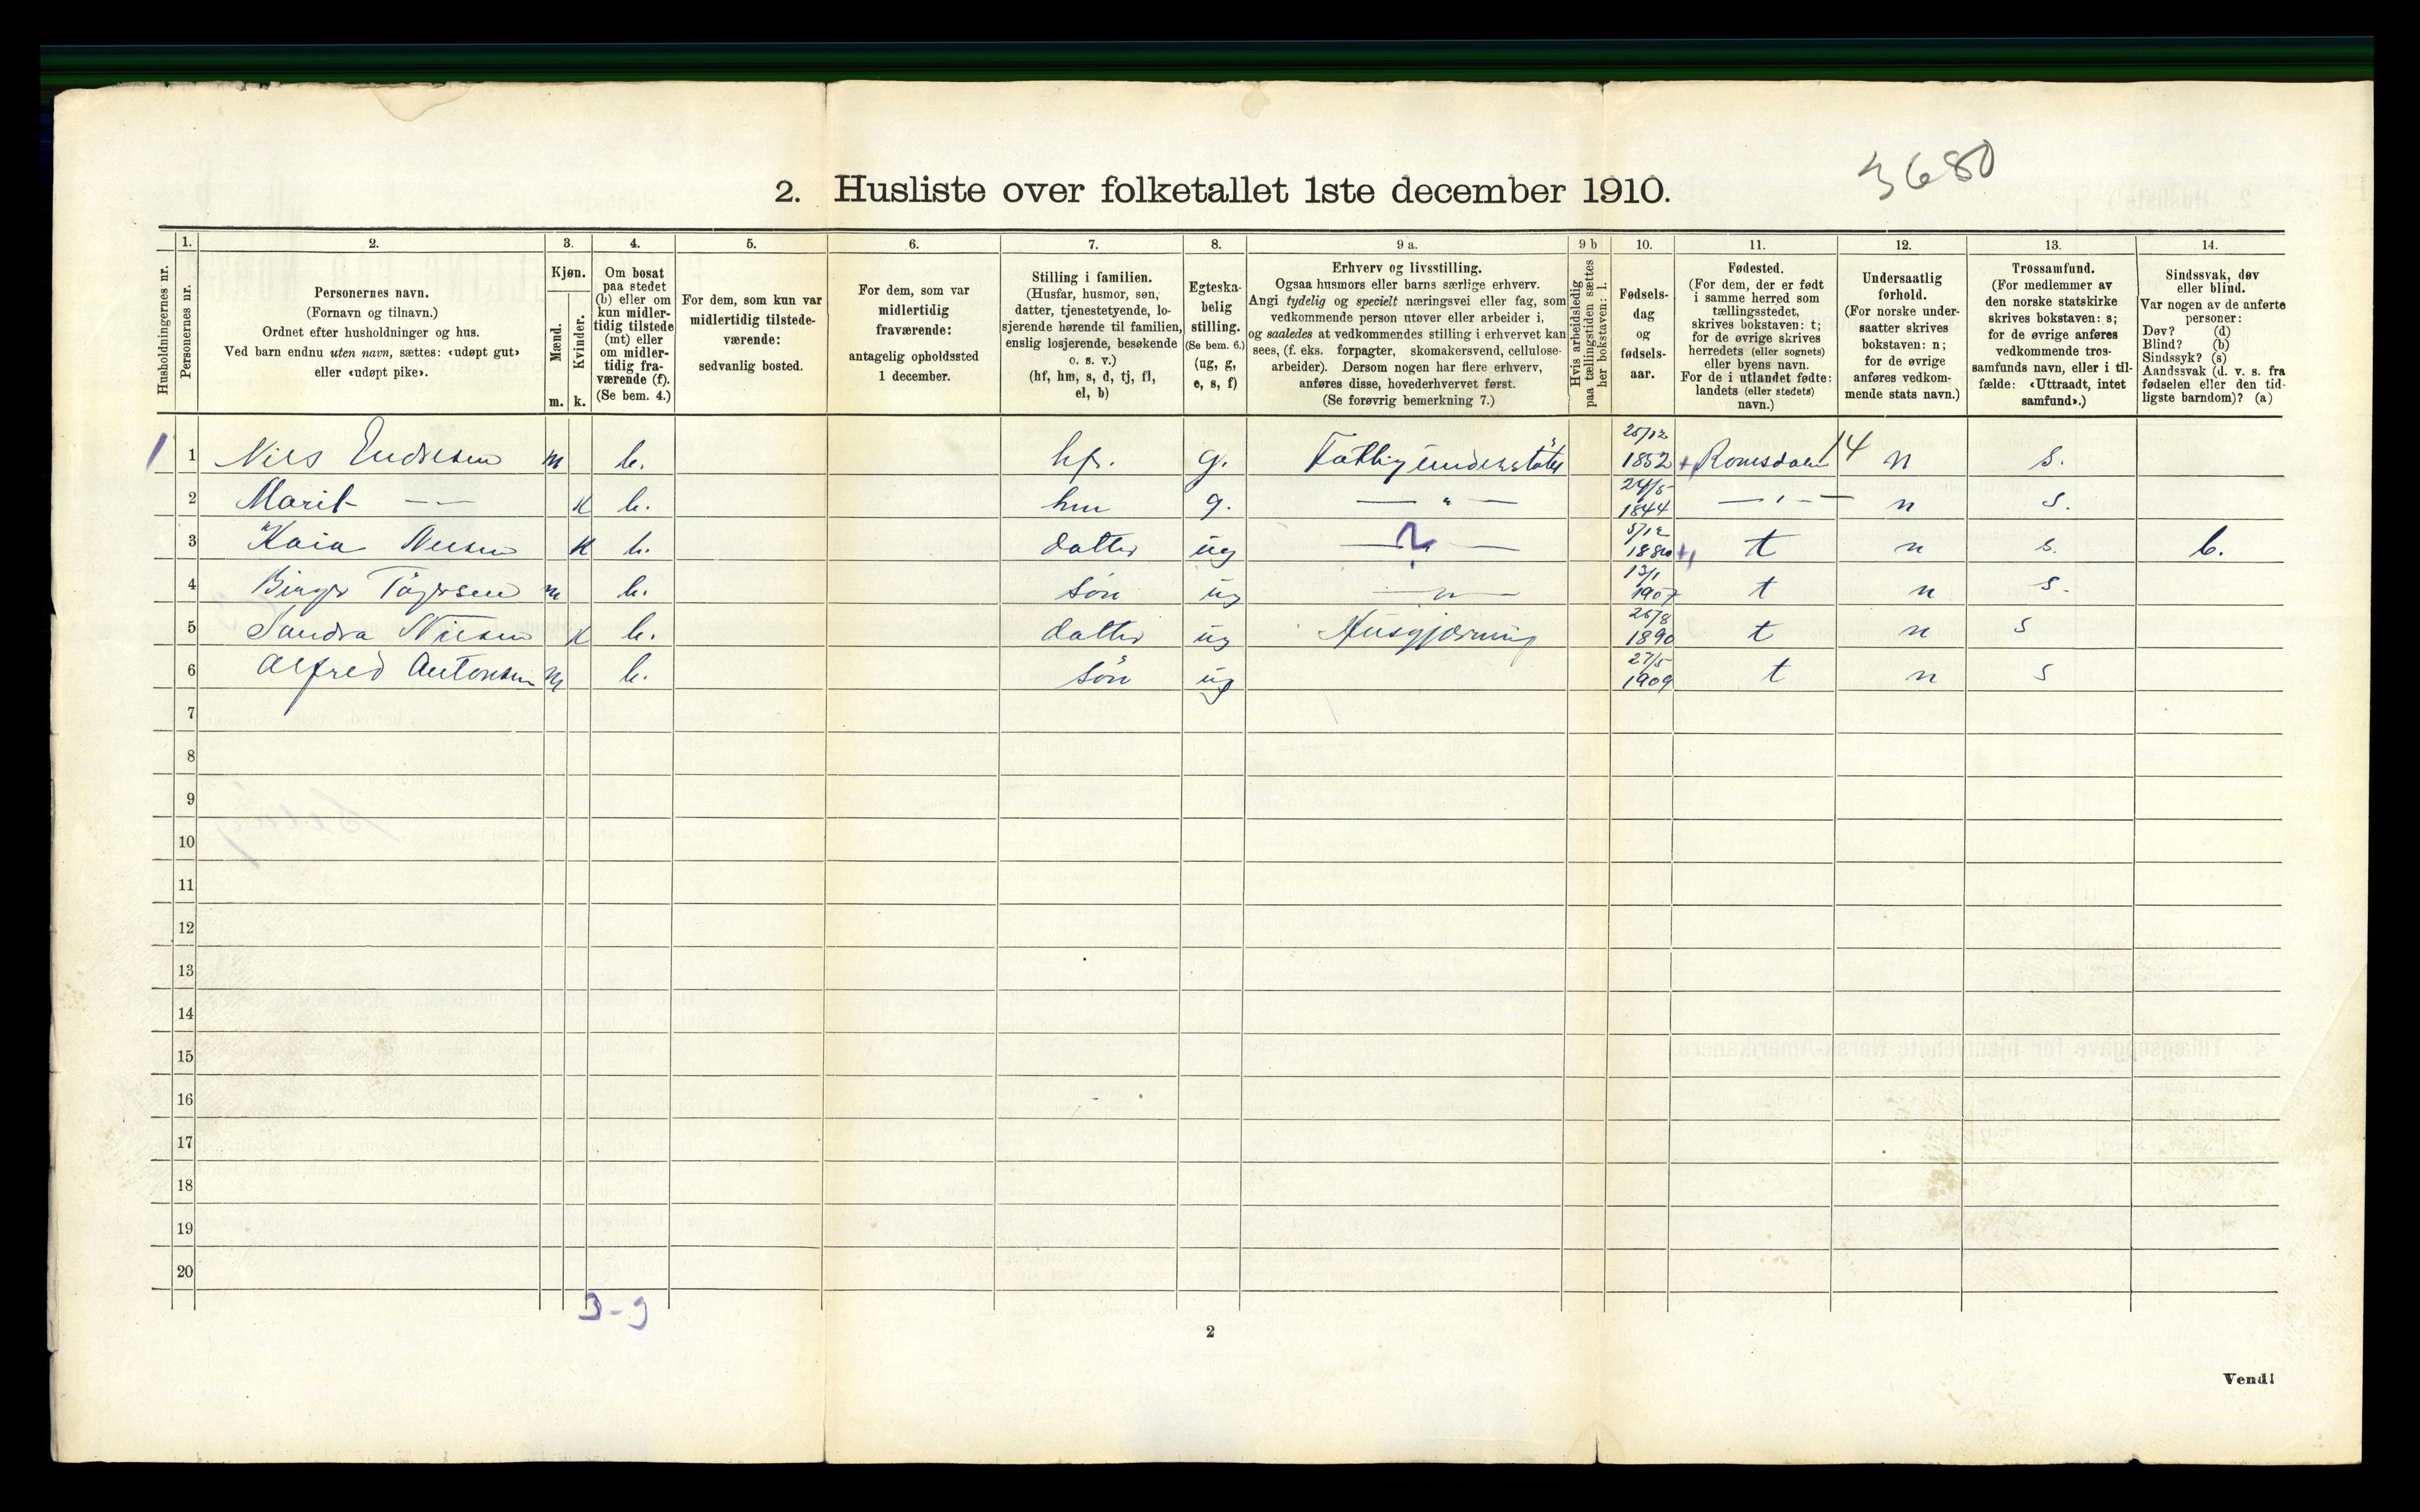 3680
2. Husliste over folketallet 1ste december 1910.
Husholdningernes nr.
1.
Personernes nr.
2.
Personernes navn.
(Fornavn og tilnavn.)
Ordnet efter husholdninger og hus.
Ved barn endnu uten navn, sættes: «udøpt gut»
eller «udøpt pike».
3.
Kjøn.
Mænd.
Kvinder.
m. k.
4.
Om bosat
paa stedet
(b) eller om
kun midler-
tidig tilstede
(mt) eller
om midler-
tidig fra-
værende (f).
(Se bem. 4.)
5.
For dem, som kun var
midlertidig tilstede-
værende:
sedvanlig bosted.
6.
For dem, som var
midlertidig
fraværende:
antagelig opholdssted
1 december.
7.
Stilling i familien.
(Husfar, husmor, søn,
datter, tjenestetyende, lo-
sjerende hørende til familien,
enslig losjerende, besøkende
o. s. v.)
(hf, hm, s, d, tj, fl,
el, b)
8.
Egteska-
belig
stilling.
(Se bem. 6.)
(ug, g,
e, s, f)
9 a.
Erhverv og livsstilling.
Ogsaa husmors eller barns særlige erhverv.
Angi tydelig og specielt næringsvei eller fag, som
vedkommende person utøver eller arbeider i,
og saaledes at vedkommendes stilling i erhvervet kan
sees, (f. eks. forpagter, skomakersvend, cellulose-
arbeider). Dersom nogen har flere erhverv,
anføres disse, hovederhvervet først.
(Se forøvrig bemerkning 7.)
9 b
Hvis arbeidsledig
paa tællingstiden sættes
her bokstaven: l.
10.
Fødsels-
dag
og
fødsels-
aar.
11.
Fødested.
(For dem, der er født
i samme herred som
tællingsstedet,
skrives bokstaven: t;
for de øvrige skrives
herredets (eller sognets)
eller byens navn.
For de i utlandet fødte:
landets (eller stedets)
navn.)
12.
Undersaatlig
forhold.
(For norske under-
saatter skrives
bokstaven: n;
for de øvrige
anføres vedkom-
mende stats navn.)
13.
Trossamfund.
(For medlemmer av
den norske statskirke
skrives bokstaven: s;
for de øvrige anføres
vedkommende tros-
samfunds navn, eller i til-
fælde: «Uttraadt, intet
samfund».)
14.
Sindssvak, døv
eller blind.
Var nogen av de anførte
personer:
Døv? (d)
Blind? (b)
Sindssyk? (s)
Aandssvak (d. v. s. fra
fødselen eller den tid-
ligste barndom)? (a)
1 1 Nils Endresen m b. hf. g. Fattigunderstötet 25/12 1852 + Romsdalen 14 n s.
2 Marit — — K b. hm g. — " — 24/5 1844 — " — n s.
3 Kaia Nilsen K b. datter ug — " — 5/12 t n s. b.
4 Birger m b. sön ug — " — 13/1 1907 t n s.
5 Sandra Nilsen K b. datter ug Husgjerning 26/8 1890 t n s
6 Alfred Antonsen m b. sön ug 27/5 1909 t n s
7
8
9
10
11
12
13
14
15
16
17
18
19
20
3-3
2
Vend!